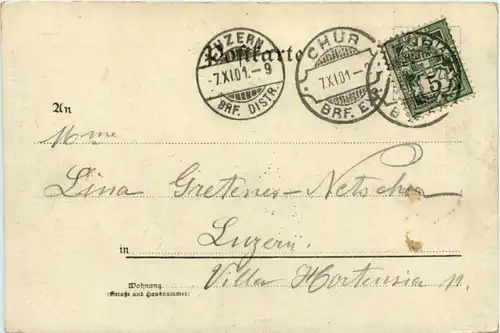 Postkarte
LUZERN
-7.XI.01.-9
BRF. DISTR.
CHUR
-7.XI.01.-
BRF. EXP.
5
An
Mme
Lina Gretener-Netscher
in Luzern.
Villa Hortensia
Wohnung
(Straße und Hausnummer)